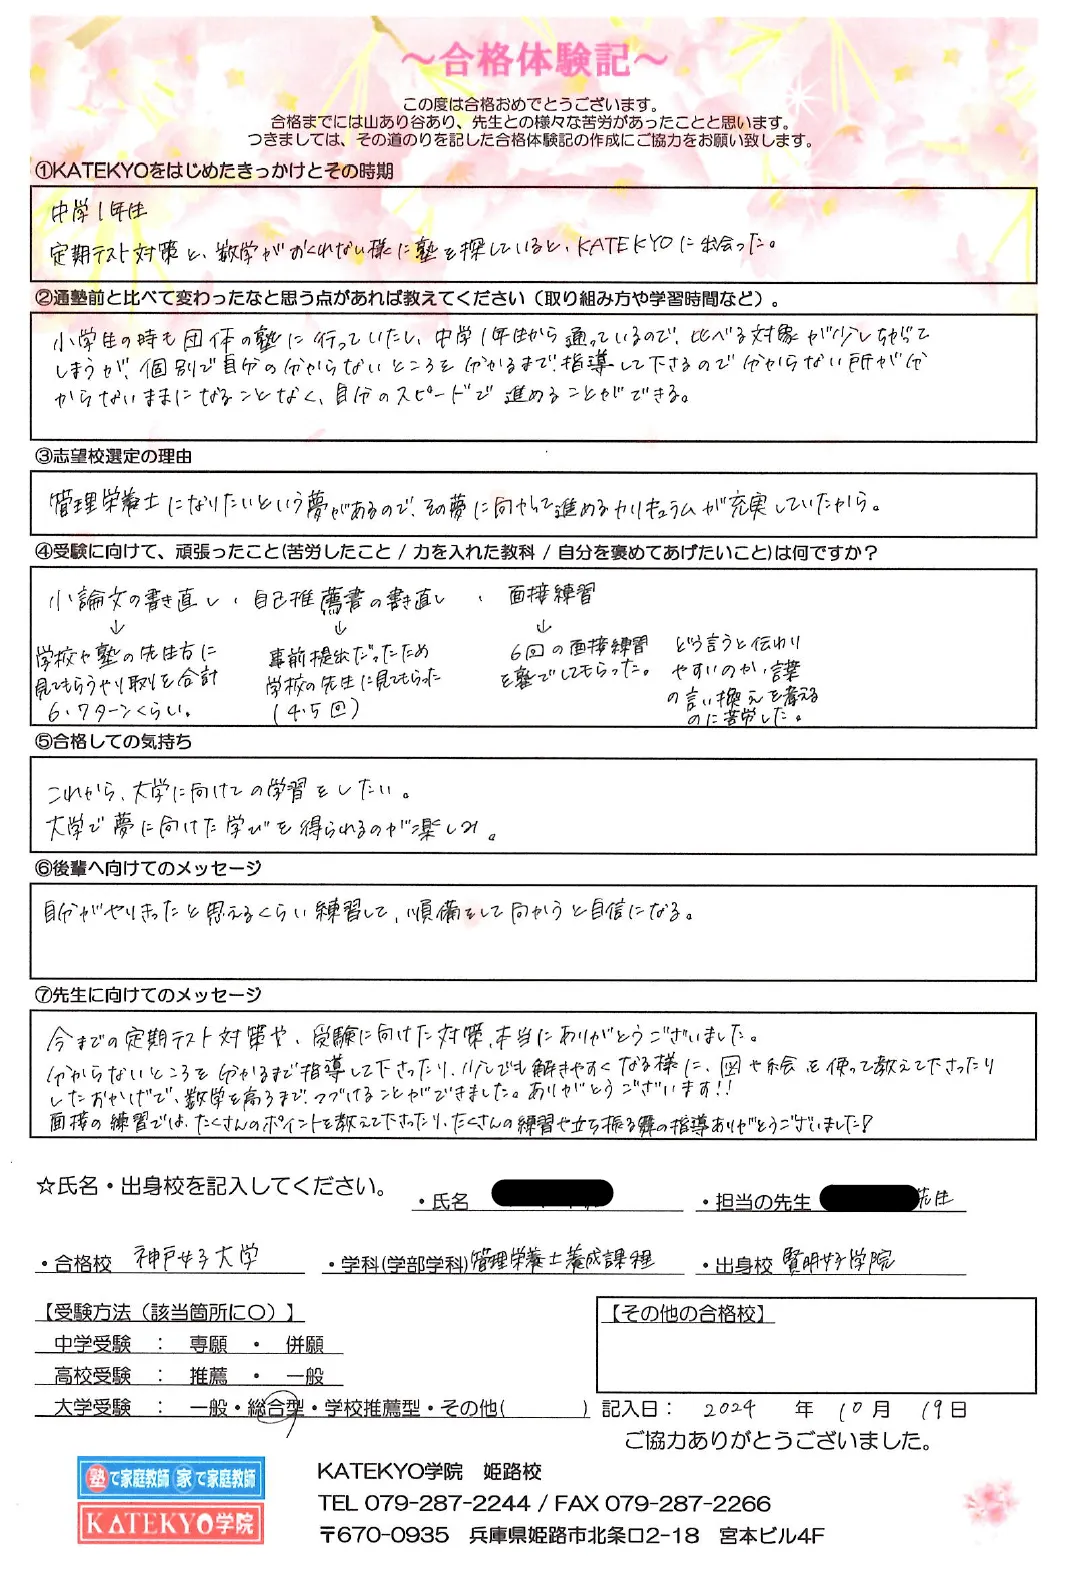 ～合格体験記～
この度は合格おめでとうございます。
合格までには山あり谷あり、先生との様々な苦労があったことと思います。
つきましては、その道のりを記した合格体験記の作成にご協力をお願い致します。
①KATEKYOをはじめたきっかけとその時期
中学1年生
定期テスト対策と、数学がおくれない様に塾を探していると、KATEKYOに出会った。
②通塾前と比べて変わったなと思う点があれば教えてください（取り組み方や学習時間など）。
小学生の時も団体の塾に行っていたし、中学1年生から通っているので、比べる対象が少しちがって
しまうが、個別で自分の分からないところを分かるまで指導して下さるので分からない所が分
からないままになることなく、自分のスピードで進めることができる。
③志望校選定の理由
管理栄養士になりたいという夢があるので、その夢に向かって進めるカリキュラムが充実していたから。
④受験に向けて、頑張ったこと(苦労したこと / 力を入れた教科 / 自分を褒めてあげたいこと)は何ですか？
小論文の書き直し、自己推薦書の書き直し、面接練習
↓ ↓ ↓
学校や塾の先生方に
見てもらうやり取りを合計
6、7ターンくらい。
事前提出だったため
学校の先生に見てもらった
(4、5回)
6回の面接練習
を塾でしてもらった。
どう言うと伝わり
やすいのか、言葉
の言い換えを考える
のに苦労した。
⑤合格しての気持ち
これから、大学に向けての学習をしたい。
大学で夢に向けた学びを得られるのが楽しみ。
⑥後輩へ向けてのメッセージ
自分がやりきったと思えるくらい練習して、順備をして向かうと自信になる。
⑦先生に向けてのメッセージ
今までの定期テスト対策や、受験に向けた対策、本当にありがとうございました。
分からないところを分かるまで指導して下さったり、少しでも解きやすくなる様に、図や絵を使って教えて下さったり
したおかげで、数学を高3まで、つづけることができました。ありがとうございます!!
面接の練習では、たくさんのポイントを教えて下さったり、たくさんの練習や立ち振る舞の指導ありがとうございました!
☆氏名・出身校を記入してください。
・氏名
・担当の先生 先生
・合格校 神戸女子大学
・学科(学部学科) 管理栄養士養成課程
・出身校 賢明女子学院
【受験方法（該当箇所に○）】
中学受験 ： 専願 ・ 併願
高校受験 ： 推薦 ・ 一般
大学受験 ： 一般・総合型・学校推薦型・その他( )
【その他の合格校】
記入日： 2024 年 10月 19日
ご協力ありがとうございました。
塾で家庭教師 家で家庭教師
KATEKYO学院
KATEKYO学院 姫路校
TEL 079-287-2244 / FAX 079-287-2266
〒670-0935 兵庫県姫路市北条口2-18 宮本ビル4F